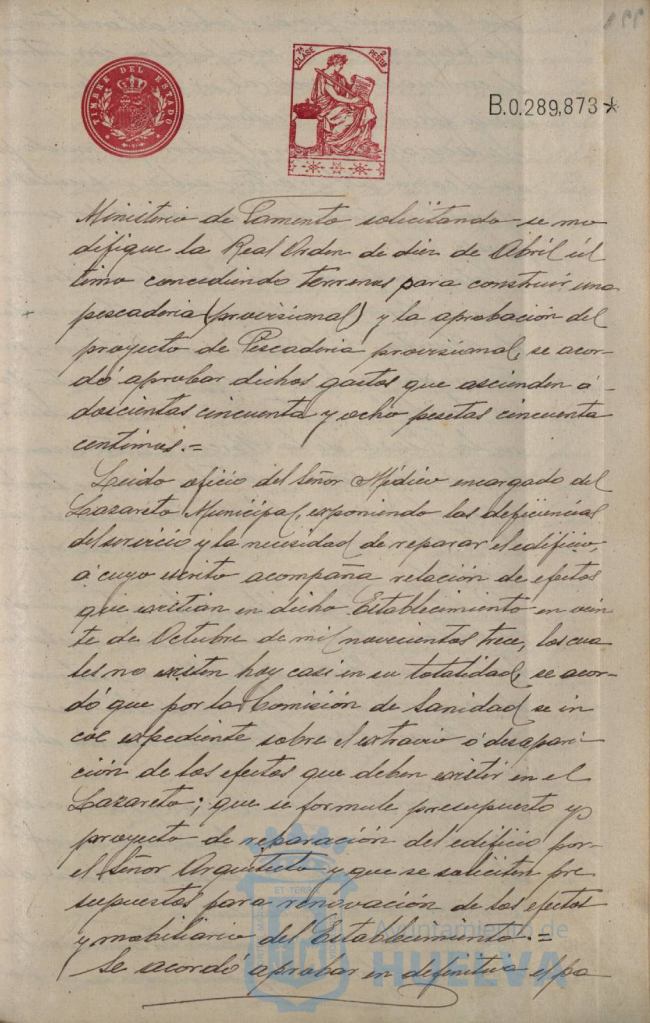 199
TIMBRE DEL ESTADO
11ª CLASE 2 PESETAS
B.0.289,873*
Ministerio de Fomento solicitando se mo
difique la Real Orden de diez de Abril úl
timo concediendo terrenos para construir una
pescaderia (provisional) y la aprobación del
proyecto de Pescaderia provisional, se acor
dó aprobar dichos gastos que ascienden á
doscientas cincuenta y ocho pesetas cincuenta
centimos.=
Leido oficio del Señor Médico encargado del
Lazareto Municipal, exponiendo las deficiencias
del servicio y la necesidad de reparar el edificio,
á cuyo escrito acompaña relación de efectos
que existian en dicho Establecimiento en vein
te de Octubre de mil novecientos trece, los cua
les no existen hoy casi en su totalidad, se acor
dó que por la Comisión de Sanidad se in
coe expediente sobre el extravio ó desapari-
ción de los efectos que deben existir en el
Lazareto; que se formule presupuesto y
proyecto de reparación del edificio por
el Señor Arquitecto y que se soliciten pre
supuestos para renovación de los efectos
y mobiliario del Establecimiento.=
Se acordó aprobar en definitiva el pa
Ayuntamiento de
HUELVA